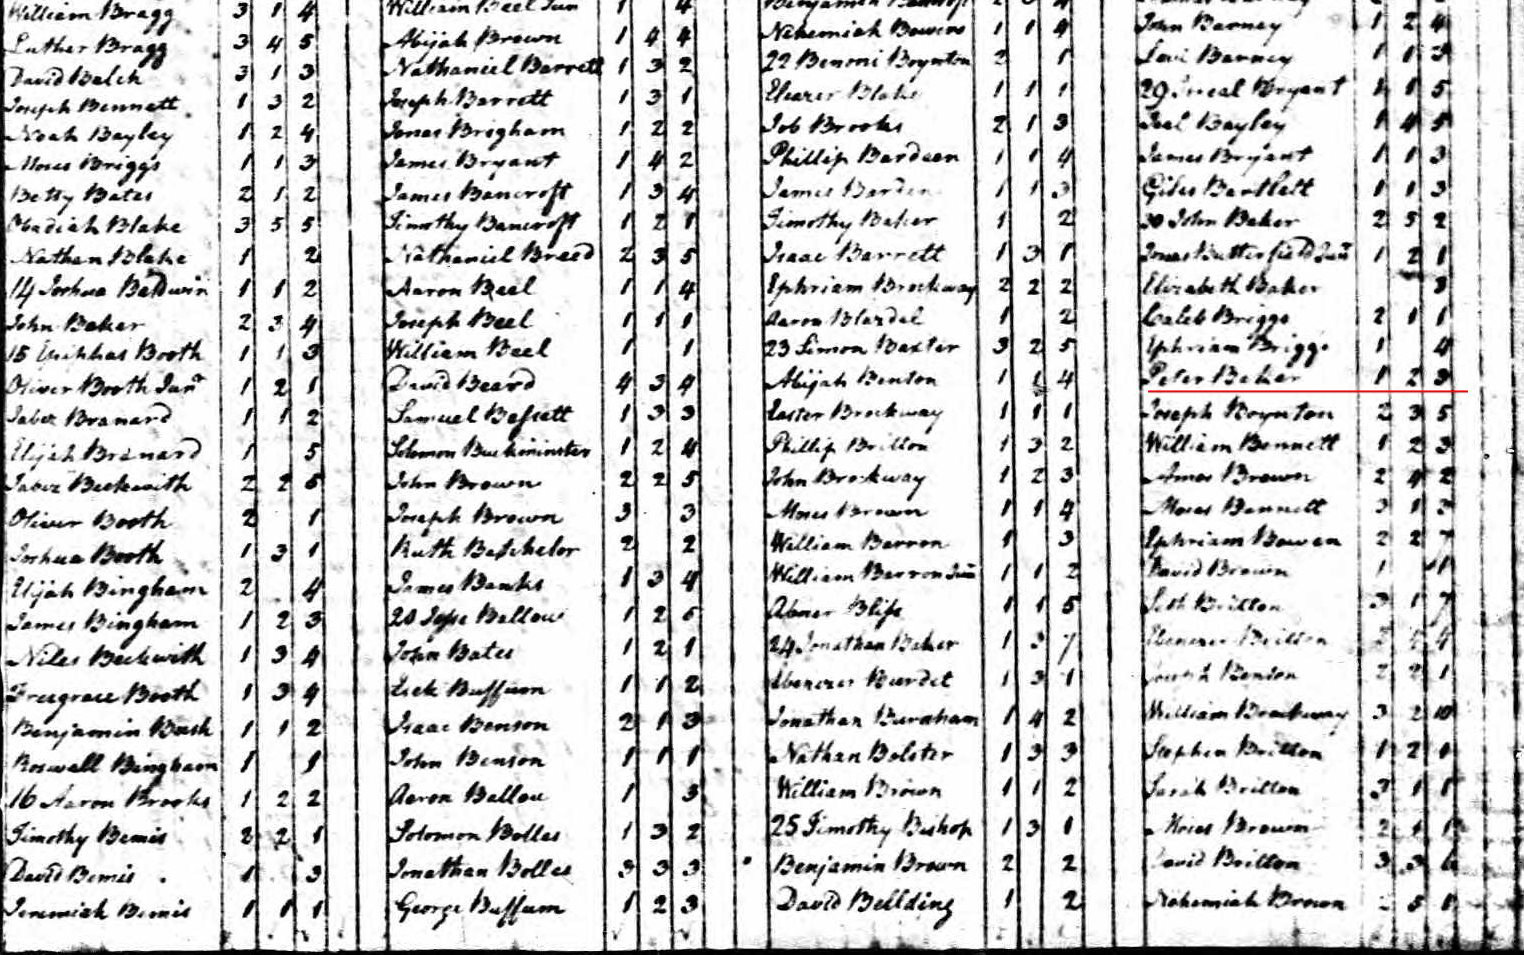 William Bragg 3 1 4
Luther Bragg 3 4 5
David Balch 3 1 3
Joseph Bennett 1 3 2
Noah Bayley 1 2 4
Moses Briggs 1 1 3
Betty Bates 2 1 2
Obadiah Blake 3 5 5
Nathan Blake 1 2
14 Joshua Baldwin 1 1 2
John Baker 2 3 4
15 Booth 1 1 3
Oliver Booth Junr 1 2 1
Jabez Branard 1 1 2
Elijah Branard 1 5
Jabez Beckwith 2 2 5
Oliver Booth 2 1
Joshua Booth 1 3 1
Elijah Bingham 2 4
James Bingham 1 2 3
Niles Beckwith 1 3 4
Freegrace Booth 1 3 4
Benjamin Bush 1 1 2
Roswell Bingham 1 1
16 Aaron Brooks 1 2 2
Timothy Bemis 2 2 1
David Bemis 1 3
Jeremiah Bemis 1 1 1
William Beel Jun 1 4
Abijah Brown 1 4 4
Nathaniel Barrett 1 3 2
Joseph Barrett 1 3 1
Jonas Brigham 1 2 2
James Bryant 1 4 2
James Bancroft 1 3 4
Timothy Bancroft 1 2 1
Nathaniel Breed 2 3 5
Aaron Beel 1 1 4
Joseph Beel 1 1 1
William Beel 1 1
David Beard 4 3 4
Samuel Bassett 1 3 3
Solomon Buckminster 1 2 4
John Brown 2 2 5
Joseph Brown 3 3
Ruth Batchelor 2 2
James Banks 1 3 4
20 Jesse Ballow 1 2 6
John Bates 1 2 1
Buffum 1 1 2
Isaac Benson 2 1 3
John Benson 1 1 1
Aaron Ballou 1 3
Solomon Bolles 1 3 2
Jonathan Bolles 3 3 3
George Buffum 1 2 3
Benjamin 2 3 4
Nehemiah Bowers 1 1 4
22 Benoni Boynton 2 1
Eleazer Blake 1 1 1
Job Brooks 2 1 3
Phillip Bardeen 1 1 4
James Barden 1 1 3
Timothy Baker 1 2
Isaac Barrett 1 3 1
Ephriam Brockway 2 2 2
Aaron Blazdel 1 2
23 Simon Baxter 3 2 5
Abijah Benton 1 1 4
Easter Brockway 1 1 1
Phillip Britton 1 3 2
John Brockway 1 2 3
Moses Brown 1 1 4
William Barron 1 3
William Barron Jun 1 1 2
Abner Bliss 1 1 5
24 Jonathan Baker 1 3 7
Ebenezer Burdet 1 3 1
Jonathan Burnham 1 4 2
Nathan Bolster 1 3 3
William Brown 1 1 2
25 Timothy Bishop 1 3 1
Benjamin Brown 2 2
David Bellding 1 2
John Barney 1 2 4
Levi Barney 1 1 3
29 Bryant 1 5
Joel Bayley 1 4 5
James Bryant 1 1 3
Giles Bartlett 1 1 3
30 John Baker 2 5 2
Jonas Butterfield Junr 1 2 1
Elizabeth Baker 3
Caleb Briggs 2 1 1
Ephriam Briggs 1 4
Peter Baker 1 2 3
Joseph Boynton 2 3 5
William Bennett 1 2 3
Amos Brown 2 4 2
Moses Bennett 3 1 3
Ephriam Bowen 2 2 7
David Brown 1 1
Seth Britton 3 1 7
Ebenezer Britton 4
Joseph Benson 2 2 1
William Brockway 3 2 10
Stephen Britton 1 2 1
Sarah Britton 3 1 1
Moses Brown 2 1 1
David Britton 3 3 6
Nehemiah Brown 5 1